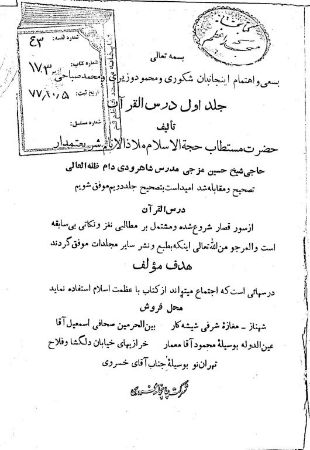 بسمه تعالی
شماره قفسه: ۴۳
شماره کتاب: ۱۷۳
تاریخ ثبت: ۷۷،۱۰،۵
شماره مسلسل:
بسعی و اهتمام اینجانبان شکوری و محمود وزیری و محمد صباحی
جلد اول درس القرآن
تألیف
حضرت مستطاب حجة الاسلام ملاذ الانام شریعتمدار
حاجی شیخ حسین عزجی مدرس شاهرودی دام ظله العالی
تصحیح و مقابله شد امید است بتصحیح جلد دویم موفق شویم
درس القرآن
از سور قصار شروع شده و مشتمل بر مطالبی نغز و نکاتی بی سابقه
است والمرجو من الله تعالی اینکه بطبع و نشر سایر مجلدات موفق گردند
هدف مؤلف
درسهائی است که اجتماع میتواند از کتاب با عظمت اسلام استفاده نماید
محل فروش
شهناز - مغازه شرقی شیشه کار بین الحرمین صحافی اسمعیل آقا
عین الدوله بوسیله محمود آقا معمار خرازیهای خیابان دلگشا و فلاح
تهران نو بوسیله جناب آقای خسروی